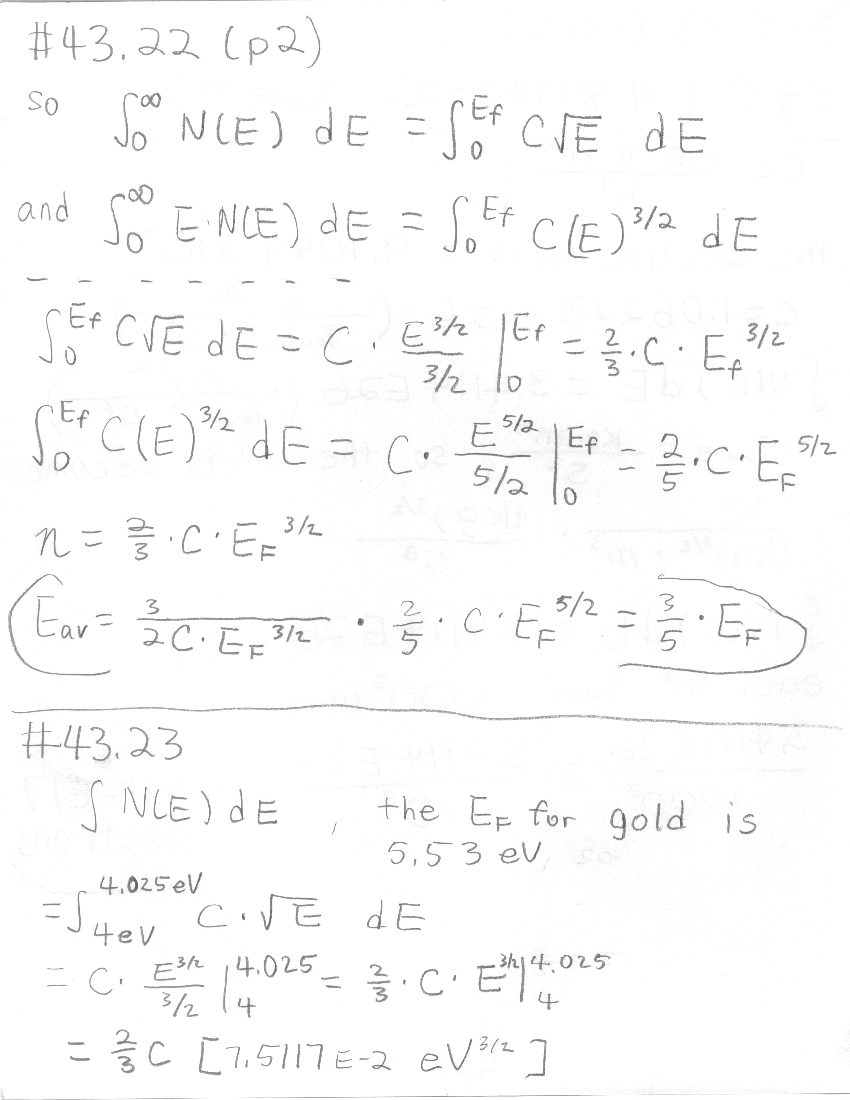 #43.22 (p2)
so ∫₀^∞ N(E) dE = ∫₀^Ef C√E dE
and ∫₀^∞ E·N(E) dE = ∫₀^Ef C(E)^3/2 dE
- - - - - - -
∫₀^Ef C√E dE = C · E^3/2 / 3/2 |₀^Ef = 2/3 · C · E_f^3/2
∫₀^Ef C(E)^3/2 dE = C · E^5/2 / 5/2 |₀^Ef = 2/5 · C · E_F^5/2
n = 2/3 · C · E_F^3/2
E_av = 3 / 2C · E_F^3/2 · 2/5 · C · E_F^5/2 = 3/5 · E_F
#43.23
∫ N(E) dE , the E_F for gold is
5.53 eV
= ∫_4eV^4.025eV C · √E dE
= C · E^3/2 / 3/2 |_4^4.025 = 2/3 · C · E^3/2 |_4^4.025
= 2/3 C [7.5117E-2 eV^3/2]